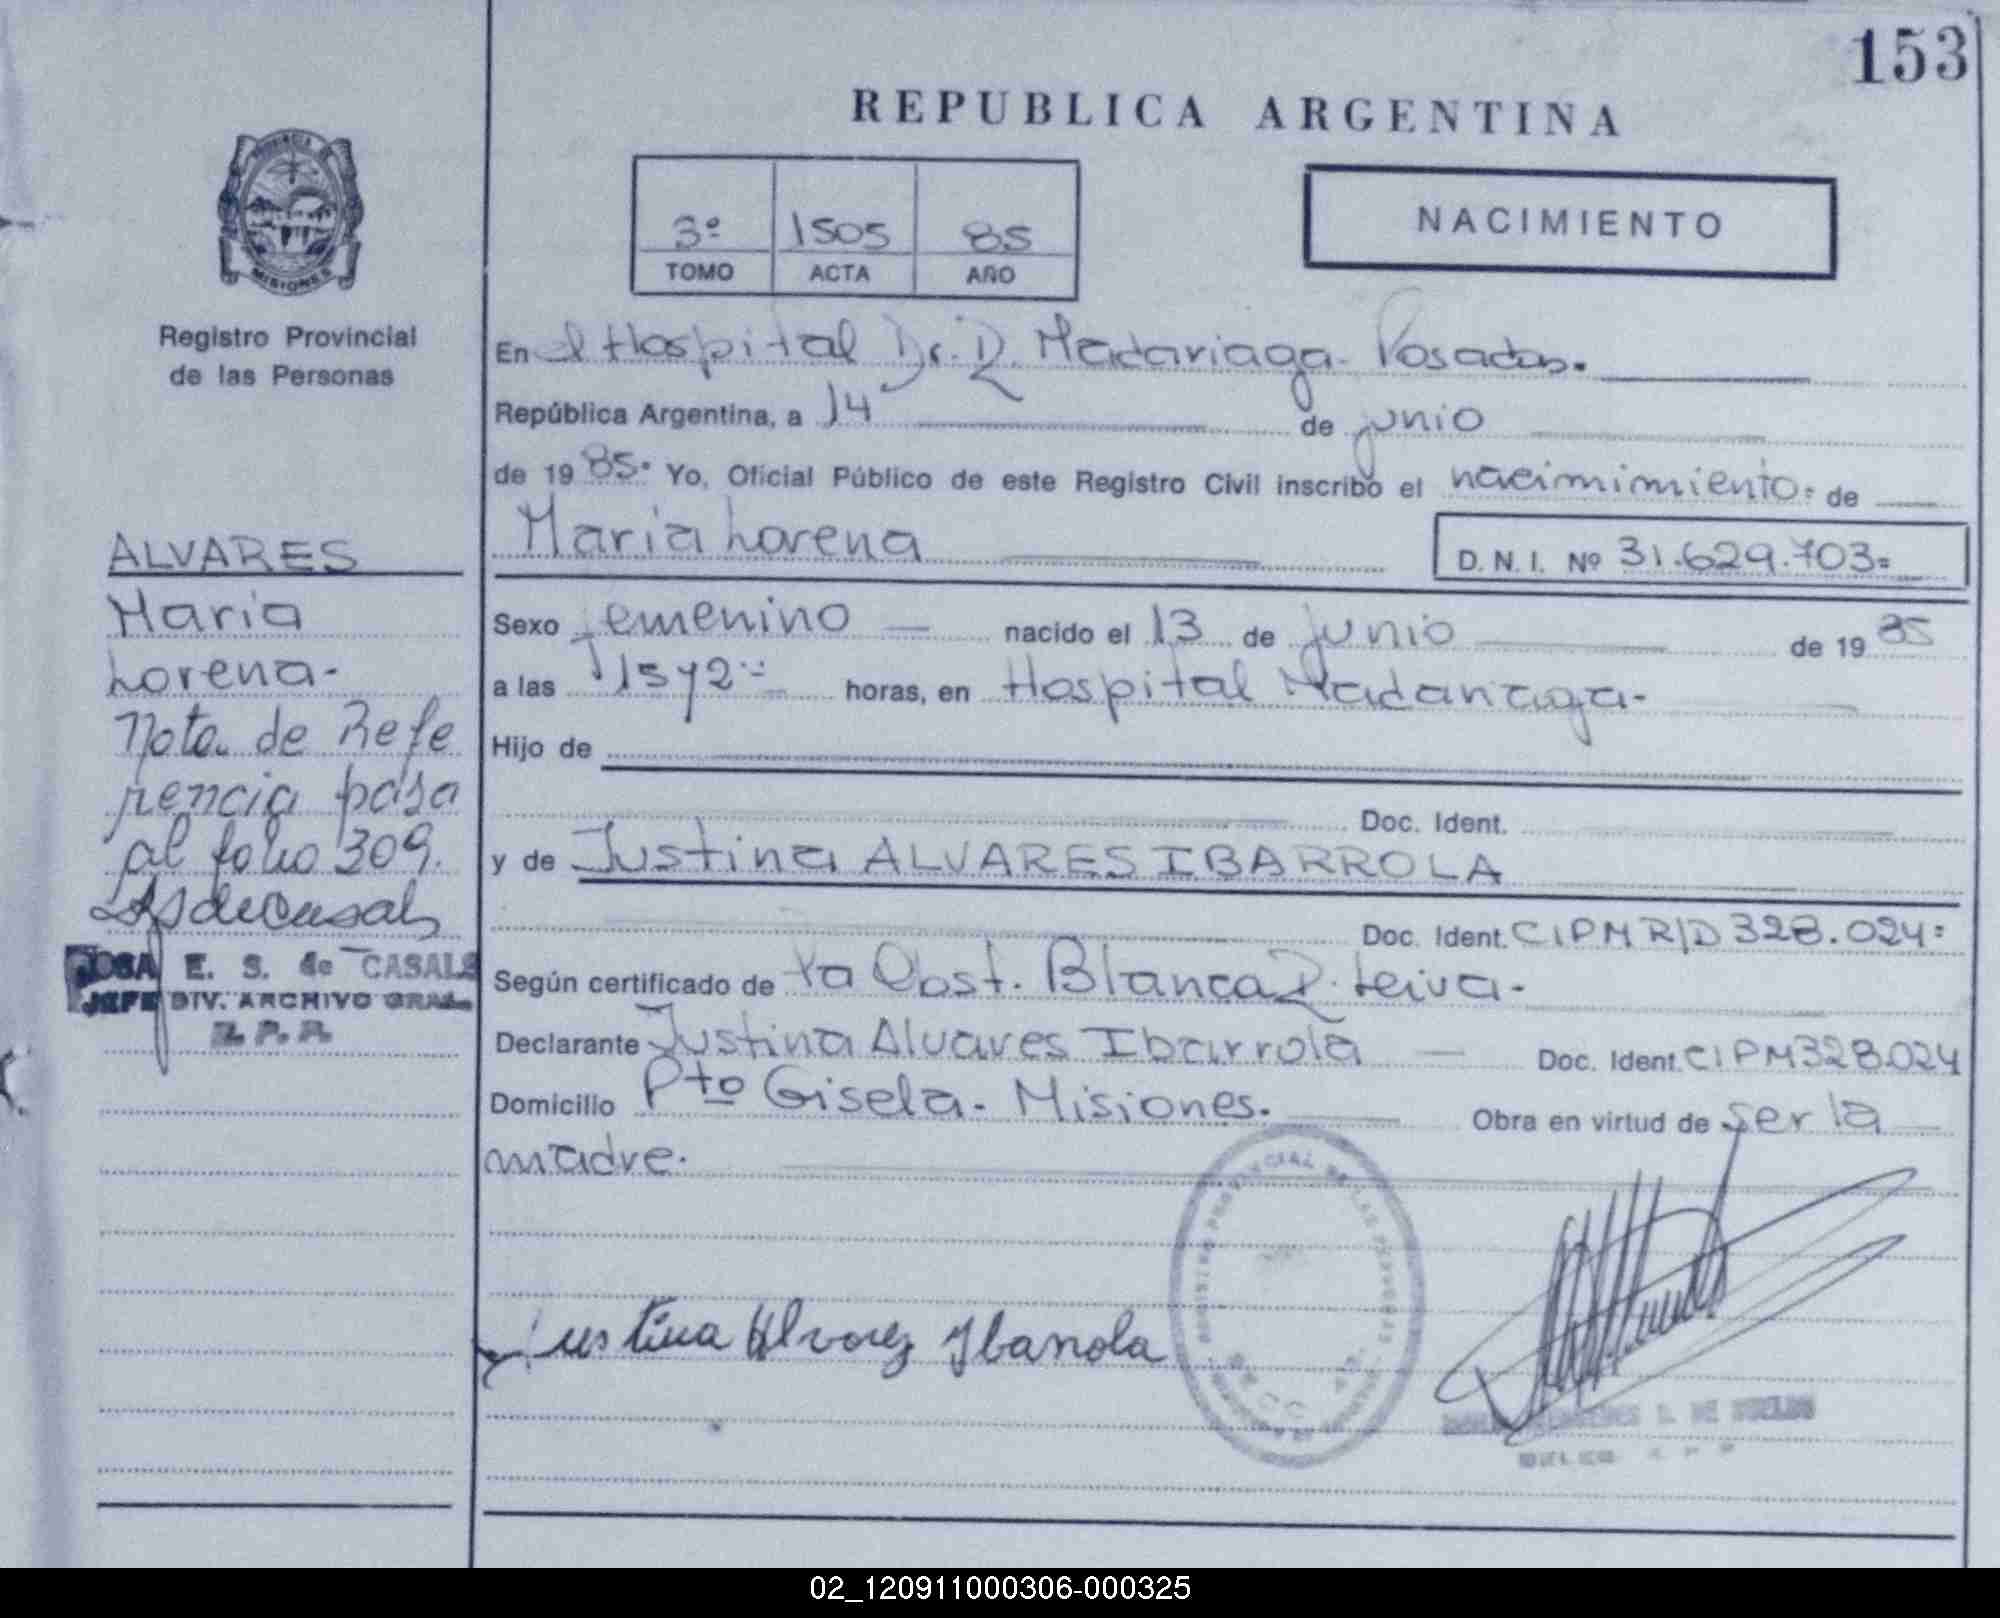 153
REPUBLICA ARGENTINA
PROVINCIA
MISIONES
Registro Provincial
de las Personas
3º 1505 85
TOMO ACTA AÑO
NACIMIENTO
En el Hospital Dr. R. Madariaga. Posadas.
República Argentina, a 14 de junio
de 1985. Yo, Oficial Público de este Registro Civil inscribo el nacimimiento= de
Maria Lorena
D. N. I. Nº 31.629.703=
Sexo femenino nacido el 13 de junio de 1985
a las 15 y 2 horas, en Hospital Madariaga-
Hijo de
Doc. Ident.
y de Justina ALVARES IBARROLA
Doc. Ident. CIPM R/D 328.024=
Según certificado de la Obst. Blanca R. Leiva-
Declarante Justina Alvares Ibarrola Doc. Ident. CIPM328.024
Domicilio Pto Gisela. Misiones. Obra en virtud de ser la
madre.
Justina Alvarez Ibarrola
ALVARES
Maria
Lorena-
Nota de Refe
rencia pasa
al folio 309.
ROSA E. S. de CASALS
JEFE DIV. ARCHIVO GRAL.
R. P. P.
02_120911000306-000325